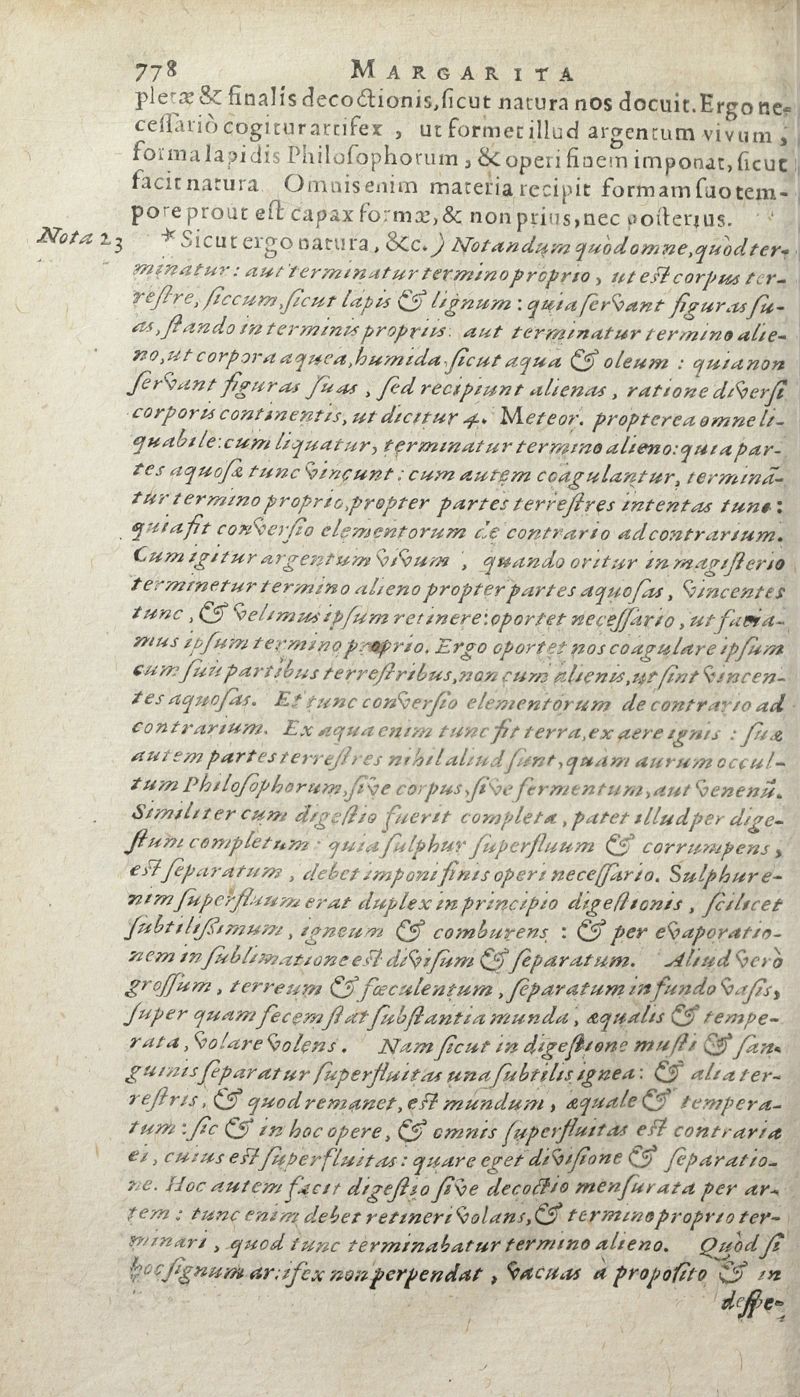 778 MARGARITA
pletæ & finalis decoctionis, sicut natura nos docuit. Ergo ne-
cessariò cogitur artifex , ut formet illud argentum vivum ,
forma lapidis Philosophorum , & operi finem imponat, sicut
facit natura. Omnis enim materia recipit formam suo tem-
pore prout est capax formæ, & non prius, nec posterius.
Nota 23 * Sicut ergo natura, &c.) Notandum quòd omne, quòd ter-
minatur: aut terminatur termino proprio , ut est corpus ter-
restre, siccum, sicut lapis & lignum : quia servant figuras su-
as, stando in terminis propriis. aut terminatur termino alie-
no, ut corpora aquea, humida, sicut aqua & oleum : quia non
servant figuras suas , sed recipiunt alienas , ratione diversi
corporis continentis, ut dicitur 4. Meteor. propterea omne li-
quabile: cum liquatur, terminatur termino alieno: quia par-
tes aquosæ tunc vincunt : cum autem coagulantur, terminã-
tur termino proprio, propter partes terrestres intentas tunc :
quia fit conversio elementorum de contrario ad contrarium.
Cum igitur argentum vivum , quando oritur in magisterio
terminetur termino alieno propter partes aquosas , vincentes
tunc , & velimus ipsum retinere: oportet necessario , ut facia-
mus ipsum termino proprio. Ergo oportet nos coagulare ipsum
cum suis partibus terrestribus, non cum alienis, ut sint vincen-
tes aquosas. Et tunc conversio elementorum de contrario ad
contrarium. Ex aqua enim tunc fit terra, ex aere ignis : suæ
autem partes terrestres nihil aliud sunt, quàm aurum occul-
tum Philosophorum, sive corpus, sive fermentum, aut venenũ.
Similiter cum digestio fuerit completa , patet illud per dige-
stum completum : quia sulphur superfluum & corrumpens ,
est separatum , debet imponi finis operi necessario. Sulphur e-
nim superfluum erat duplex in principio digestionis , scilicet
subtilissimum , igneum & comburens : & per evaporatio-
nem in sublimatione est divisum & separatum. Aliud verò
grossum , terreum & fœculentum , separatum in fundo vasis,
super quam fecem stat substantia munda , æqualis & tempe-
rata , volare volens . Nam sicut in digestione musti & san-
guinis separatur superfluitas una subtilis ignea : & alia ter-
restris , & quod remanet, est mundum , æquale & tempera-
tum : sic & in hoc opere, & omnis superfluitas est contraria
ei , cuius est superfluitas : quare eget divisione & separatio-
ne. Hoc autem facit digestio sive decoctio mensurata per ar-
tem : tunc enim debet retineri volans, & termino proprio ter-
minari , quod tunc terminabatur termino alieno. Quòd si
hoc signum artifex non perpendat , vacuas à proposito & in
despe-